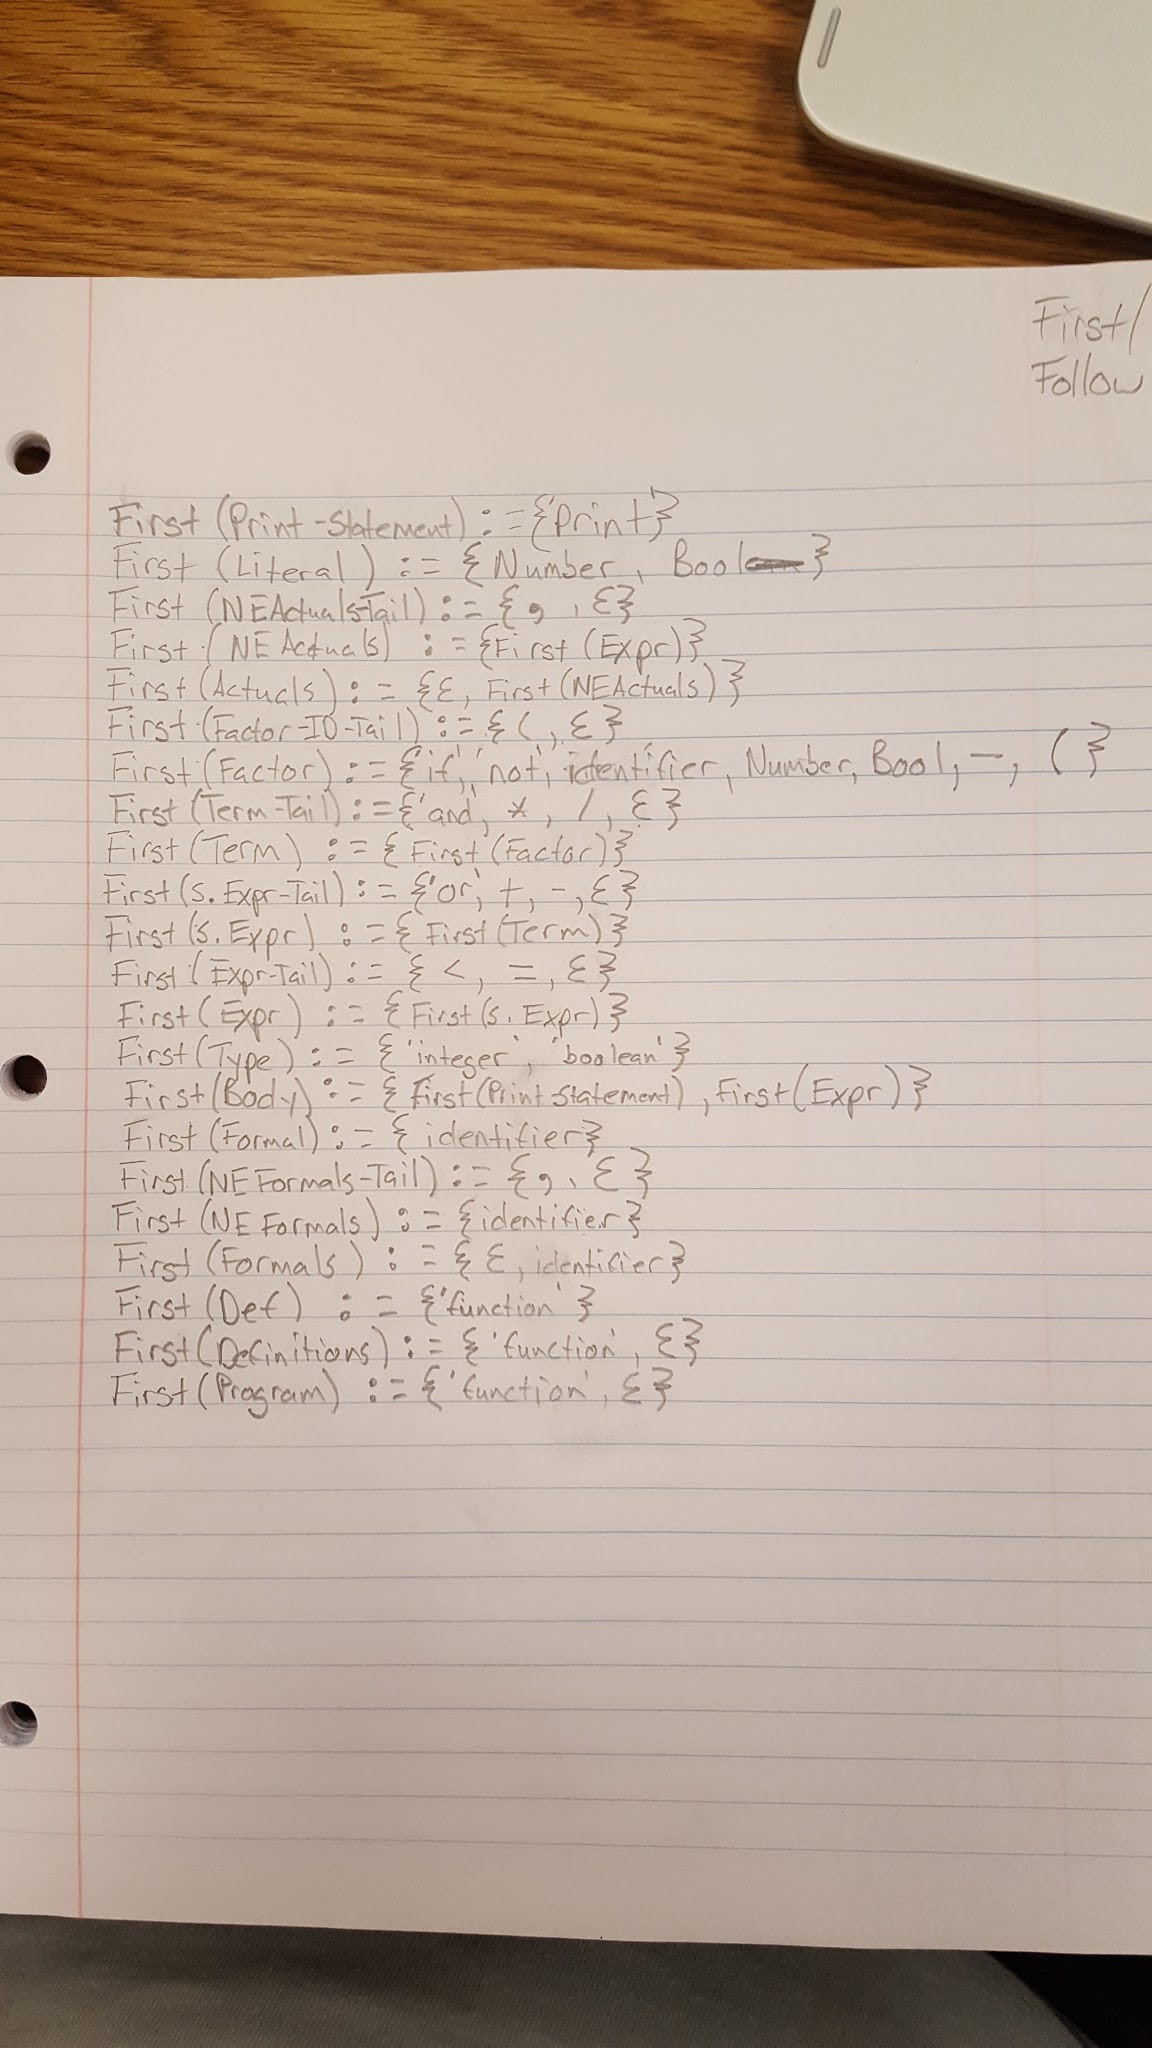 First/
Follow
First (Print-Statement) ::= {'print'}
First (Literal) ::= {Number, Bool}
First (NEActuals-Tail) ::= { , , ε}
First (NEActuals) ::= {First (Expr)}
First (Actuals) ::= {ε, First (NEActuals)}
First (Factor-ID-Tail) ::= { (, ε}
First (Factor) ::= {'if', 'not', identifier, Number, Bool, -, ( }
First (Term-Tail) ::= {'and', *, /, ε}
First (Term) ::= {First (Factor)}
First (S. Expr-Tail) ::= {'or', +, -, ε}
First (S. Expr) ::= {First (Term)}
First (Expr-Tail) ::= { <, =, ε}
First (Expr) ::= {First (S. Expr)}
First (Type) ::= {'integer', 'boolean'}
First (Body) ::= {First (Print-Statement), First (Expr)}
First (Formal) ::= {identifier}
First (NEFormals-Tail) ::= { , , ε}
First (NEFormals) ::= {identifier}
First (Formals) ::= {ε, identifier}
First (Def) ::= {'function'}
First (Definitions) ::= {'function', ε}
First (Program) ::= {'function', ε}